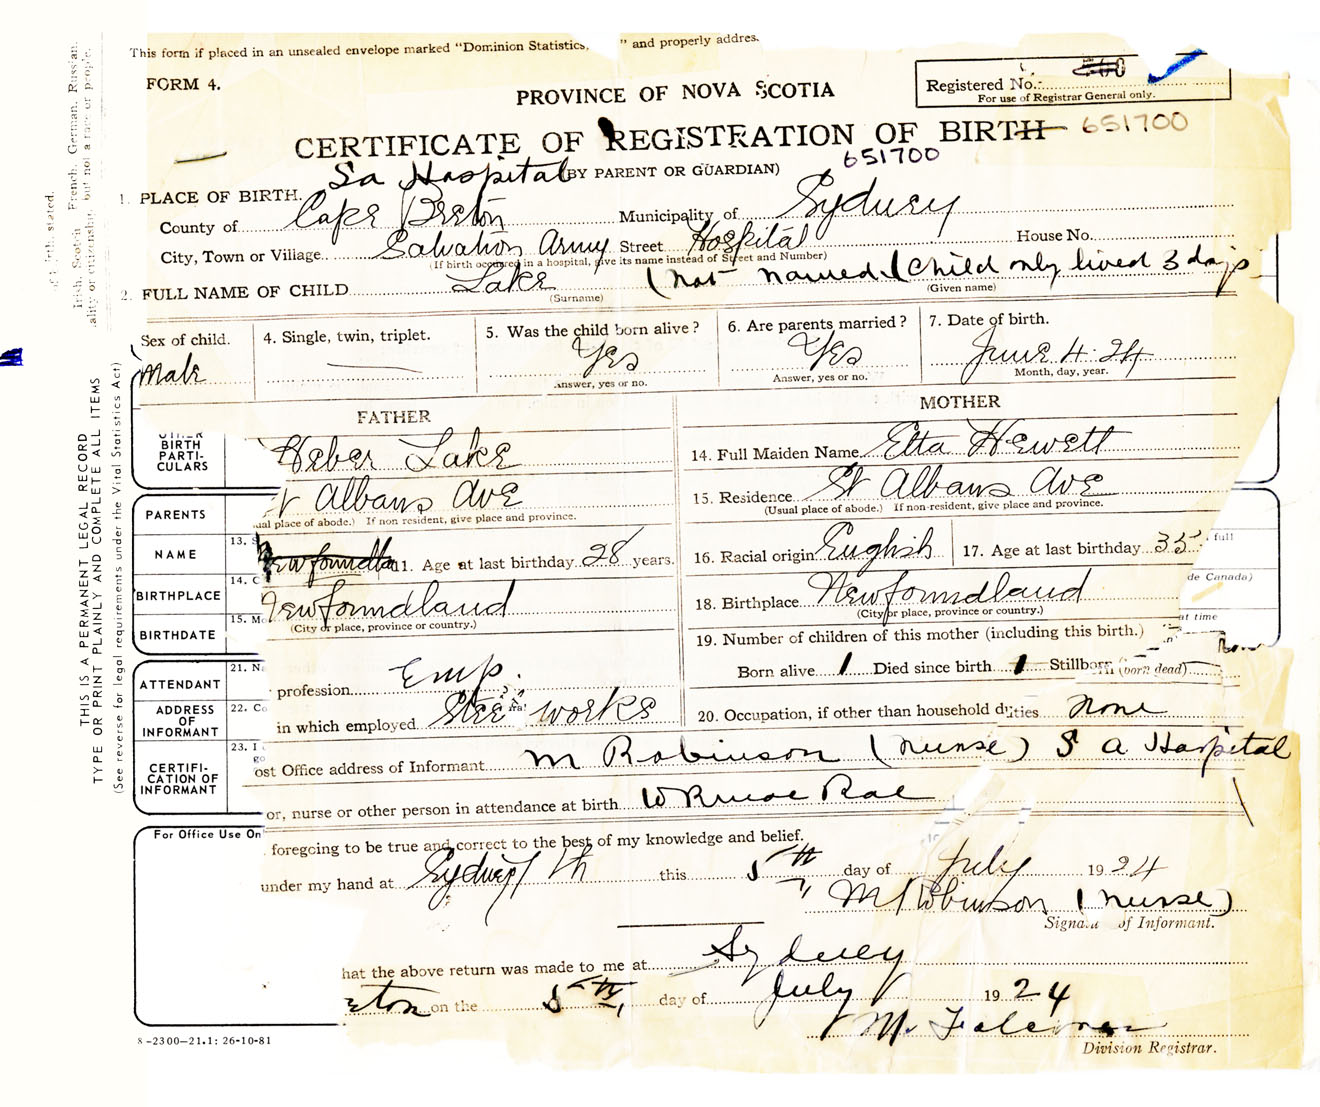 This form if placed in an unsealed envelope marked "Dominion Statistics, " and properly addres.
FORM 4.
Registered No.
For use of Registrar General only.
PROVINCE OF NOVA SCOTIA
CERTIFICATE OF REGISTRATION OF BIRTH 651700
(BY PARENT OR GUARDIAN) 651700
1. PLACE OF BIRTH. Sa Hospital
County of Cape Breton Municipality of Sydney
City, Town or Village Salvation Army Street Hospital House No.
(If birth occured in a hospital, give its name instead of Street and Number)
2. FULL NAME OF CHILD Lake (not named. (Child only lived 3 days
(Surname) (Given name)
Sex of child. Male
4. Single, twin, triplet. —
5. Was the child born alive? Yes
Answer, yes or no.
6. Are parents married? Yes
Answer, yes or no.
7. Date of birth. June 4. 24
Month, day, year.
FATHER
MOTHER
Heber Lake
14. Full Maiden Name Etta Hewett
St Albans Ave
ual place of abode.) If non resident, give place and province.
15. Residence St Albans Ave
(Usual place of abode.) If non-resident, give place and province.
Newfoundla 11. Age at last birthday 28 years.
16. Racial origin English 17. Age at last birthday 35
Newfoundland
(City or place, province or country.)
18. Birthplace Newfoundland
(City or place, province or country.)
19. Number of children of this mother (including this birth.)
Born alive 1 Died since birth 1 Stillborn (born dead)
profession Emp.
in which employed Steel works
20. Occupation, if other than household duties None
ost Office address of Informant M Robinson (nurse) S A Hospital
or, nurse or other person in attendance at birth
foregoing to be true and correct to the best of my knowledge and belief.
under my hand at Sydney this 5th day of July 1924
M Robinson (nurse)
Signa of Informant.
hat the above return was made to me at Sydney
eton on the 5th, day of July 1924
Division Registrar.
BIRTH
PARTI-
CULARS
PARENTS
NAME
BIRTHPLACE
BIRTHDATE
13. S
14. C
15. M
ATTENDANT
ADDRESS
OF
INFORMANT
CERTIFI-
CATION OF
INFORMANT
21. Na
22. Co
23. I
go
For Office Use On
full
de Canada)
at time
8-2300-21.1: 26-10-81
THIS IS A PERMANENT LEGAL RECORD
TYPE OR PRINT PLAINLY AND COMPLETE ALL ITEMS
(See reverse for legal requirements under the Vital Statistics Act)
stated.
Irish, Scotch French, German, Russian.
ality or citizenship but not a race or people.